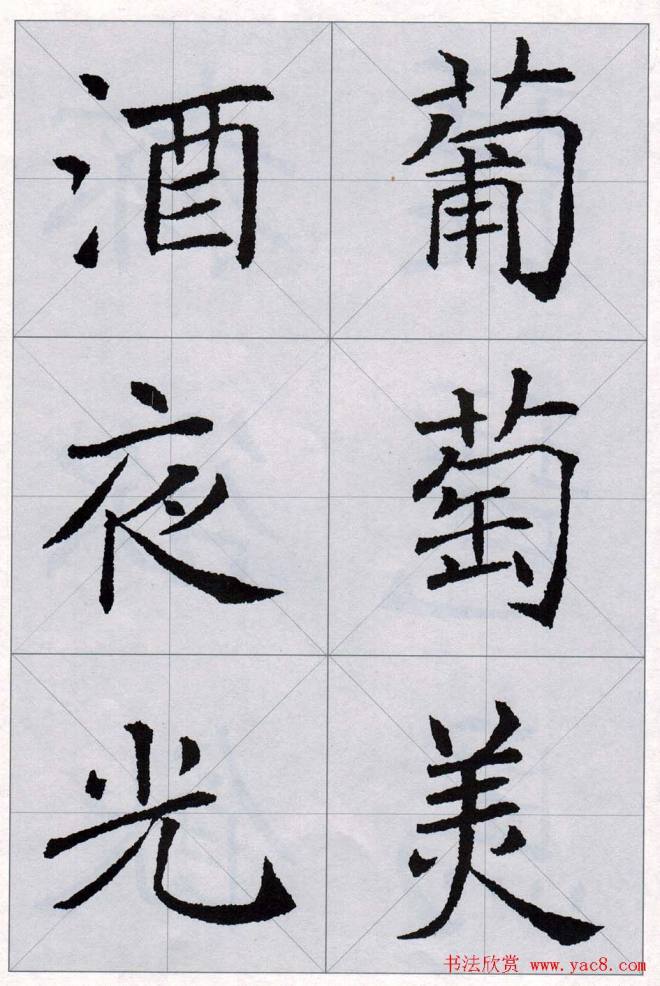 葡萄美
酒夜光
书法欣赏 www.yac8.com